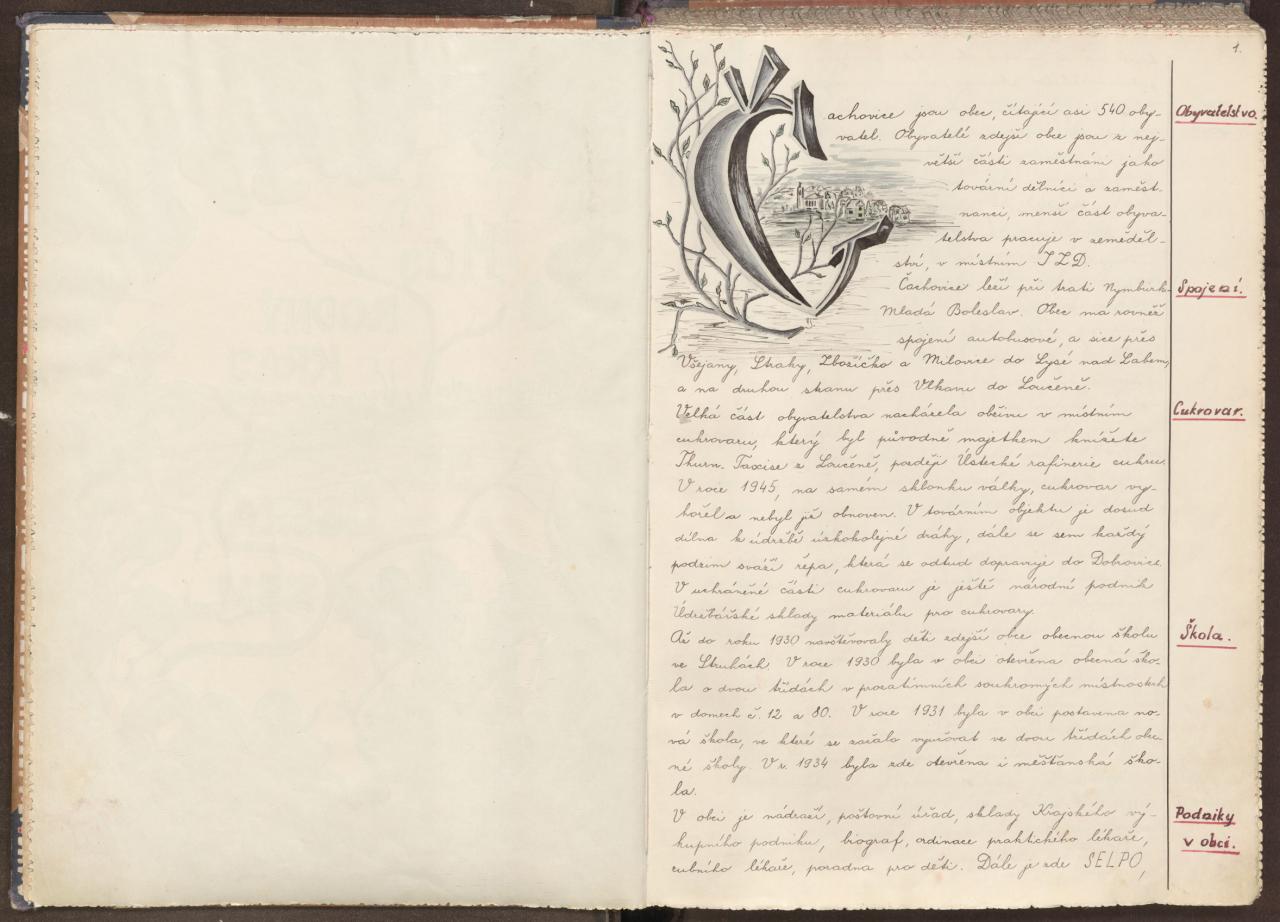 1.
Čachovice jsou obec, čítající asi 540 oby-
vatel. Obyvatelé zdejší obce jsou z nej-
větší části zaměstnáni jako
tovární dělníci a zaměst-
nanci, menší část obyva-
telstva pracuje v zeměděl-
ství, v místním JZD.
Čachovice leží při trati Nymburk-
Mladá Boleslav. Obec má rovněž
spojení autobusové, a sice přes
Všejany, Straky, Zbožíčko a Milovice do Lysé nad Labem,
a na druhou stranu přes Vlkavu do Loučeně.
Velká část obyvatelstva nacházela obživu v místním
cukrovaru, který byl původně majetkem knížete
Thurn. Taxise z Loučeně, později Ústecké rafinerie cukru.
V roce 1945, na samém sklonku války, cukrovar vy-
hořel a nebyl již obnoven. V továrním objektu je dosud
dílna k údržbě úzkokolejné dráhy, dále se sem každý
podzim sváží řepa, která se odtud dopravuje do Dobrovice.
V uchráněné části cukrovaru je ještě národní podnik
Údržbářské sklady materiálu pro cukrovary.
Až do roku 1930 navštěvovaly děti zdejší obce obecnou školu
ve Struhách. V roce 1930 byla v obci otevřena obecná ško-
la o dvou třídách v prozatímních soukromých místnostech
v domech č. 12 a 80. V roce 1931 byla v obci postavena no-
vá škola, ve které se začalo vyučovat ve dvou třídách obec-
né školy. V r. 1934 byla zde otevřena i měšťanská ško-
la.
V obci je nádraží, poštovní úřad, sklady Krajského vý-
kupního podniku, biograf, ordinace praktického lékaře,
zubního lékaře, poradna pro děti. Dále je zde SELPO,
Obyvatelstvo.
Spojení.
Cukrovar.
Škola.
Podniky
v obci.